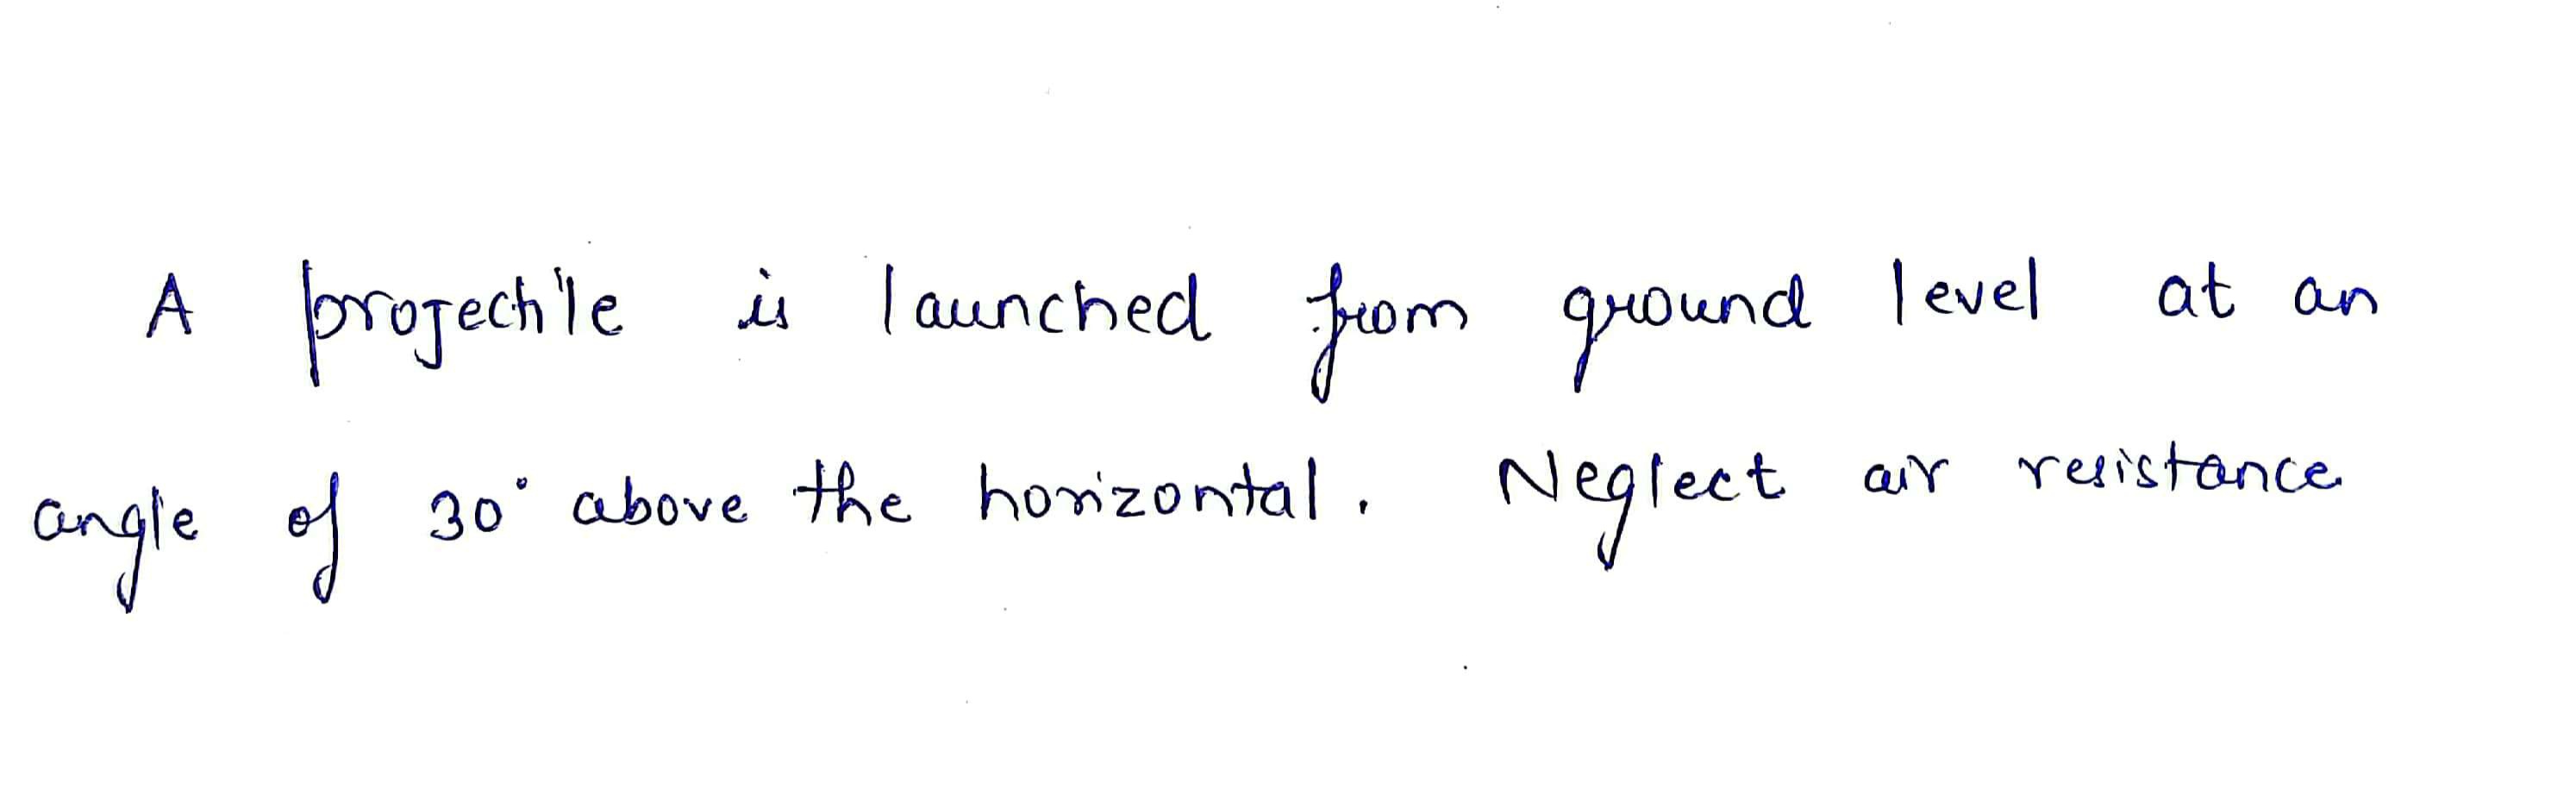 A projectile is launched from ground level at an
angle of 30° above the horizontal. Neglect air resistance